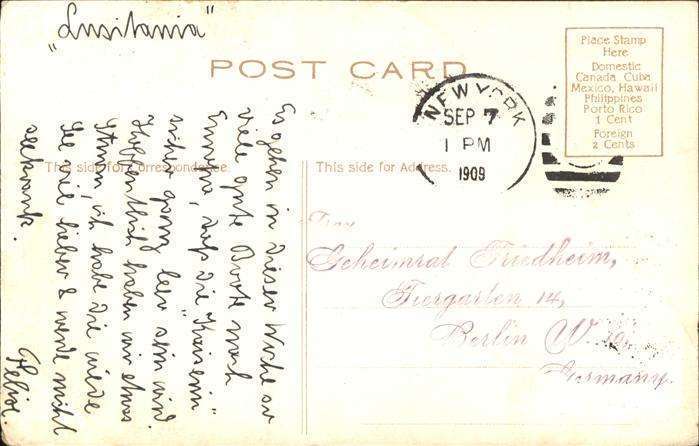 "Lusitania"
POST CARD
Place Stamp
Here
Domestic
Canada Cuba
Mexico, Hawaii
Philippines
Porto Rico
1 Cent
Foreign
2 Cents
NEW YORK
SEP 7
1 PM
1909
This side for Correspondence
This side for Address.
Es gehen in dieser Woche so
viele gute Boote nach
Europa, daß die "Kaiserin"
sicher ganz leer sein wird.
Hoffentlich haben wir etwas
Sturm, ich habe die wilde
See viel lieber & werde nicht
seekrank.
Frau
Geheimrat Friedheim,
Tiergarten 14,
Berlin W.
Germany.